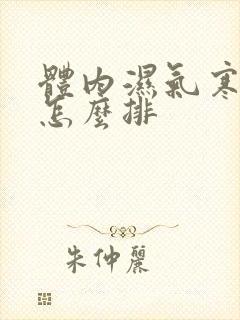 體內濕氣寒
怎麼排
朱仲麗